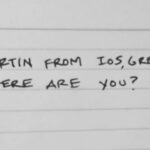 RTIN FROM IOS, GRE
ERE ARE YOU?